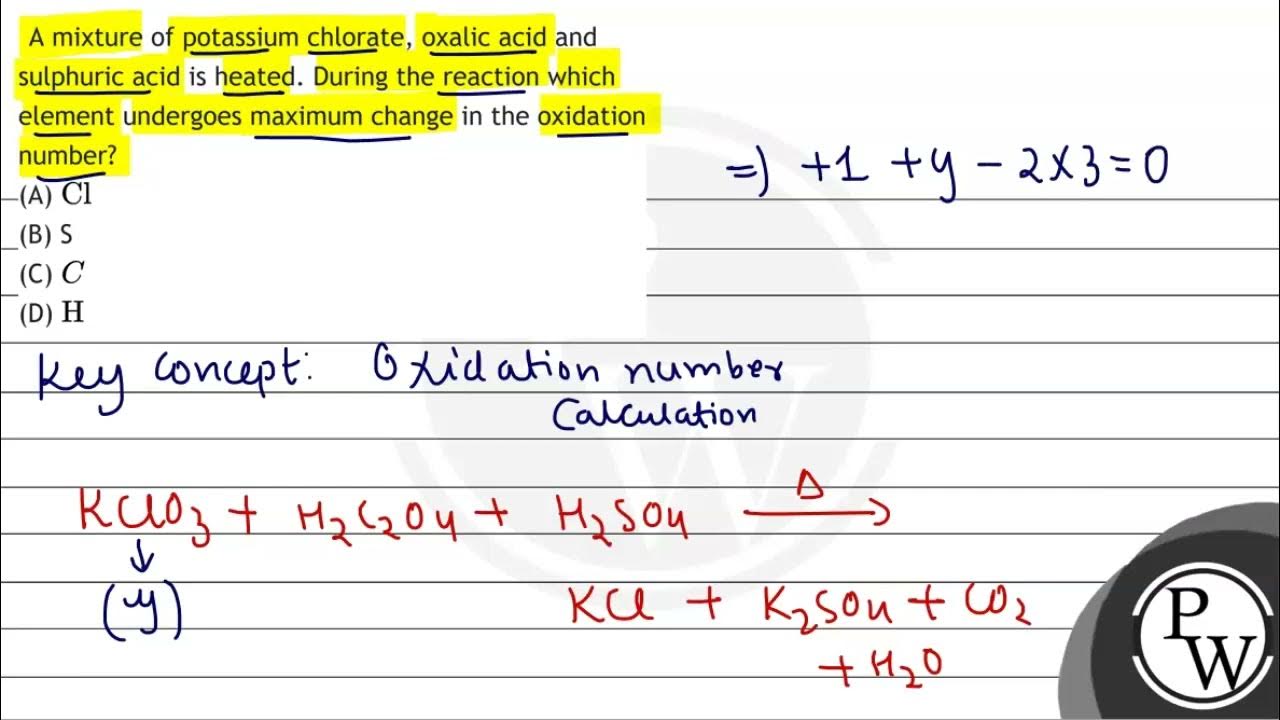 A mixture of potassium chlorate, oxalic acid and
sulphuric acid is heated. During the reaction which
element undergoes maximum change in the oxidation
number?
(A) Cl
(B) S
(C) C
(D) H
=) +1 +y - 2×3=0
Key concept: Oxidation number
Calculation
KClO3 + H2C2O4 + H2SO4 Δ→
↓
(y)
KCl + K2SO4 + CO2
+ H2O
PW